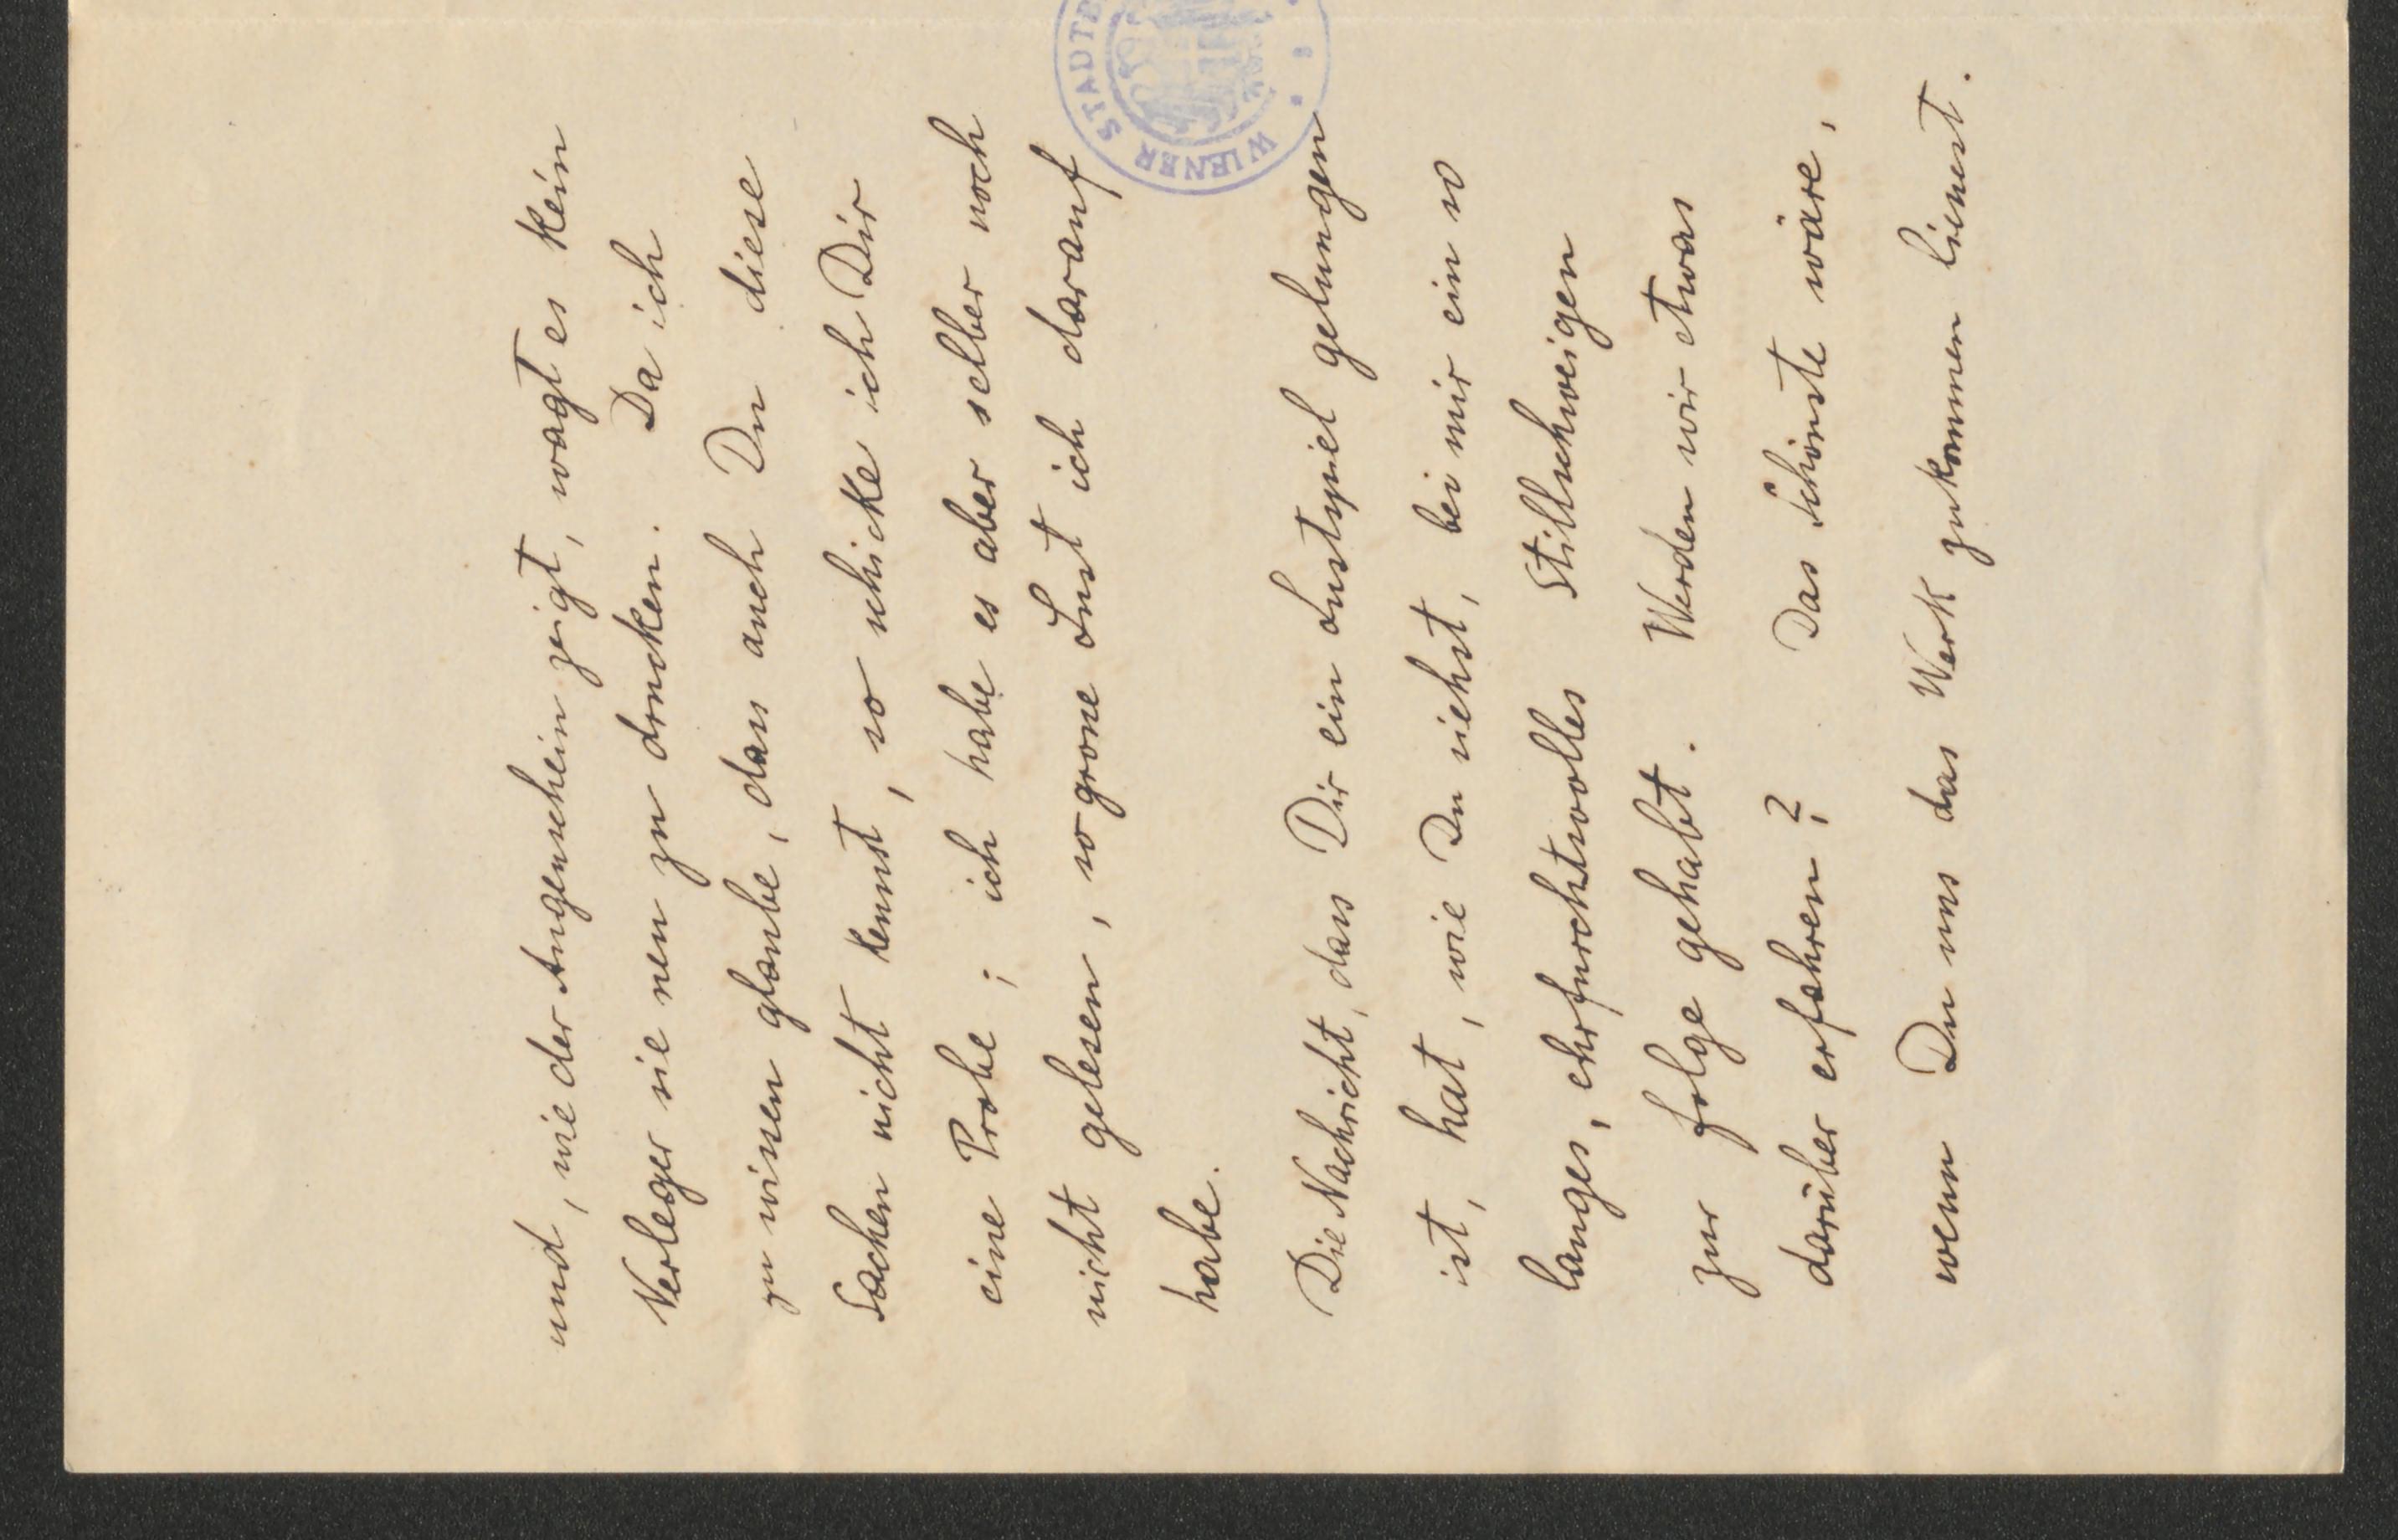 und, wie der Augenschein zeigt, wagt es kein
Verleger sie neu zu drucken. Da ich
zu wissen glaube, dass auch Du diese
Sachen nicht kennst, so schicke ich Dir
eine Probe; ich habe es aber selber noch
nicht gelesen, so grosse Lust ich darauf
habe.
Die Nachricht, dass Dir ein Lustspiel gelungen
ist, hat, wie Du siehst, bei mir ein so
langes, ehrfurchtsvolles Stillschweigen
zur Folge gehabt. Werden wir etwas
darüber erfahren? Das Schönste wäre,
wenn Du uns das Werk zukommen liessest.
WIENER STADTB